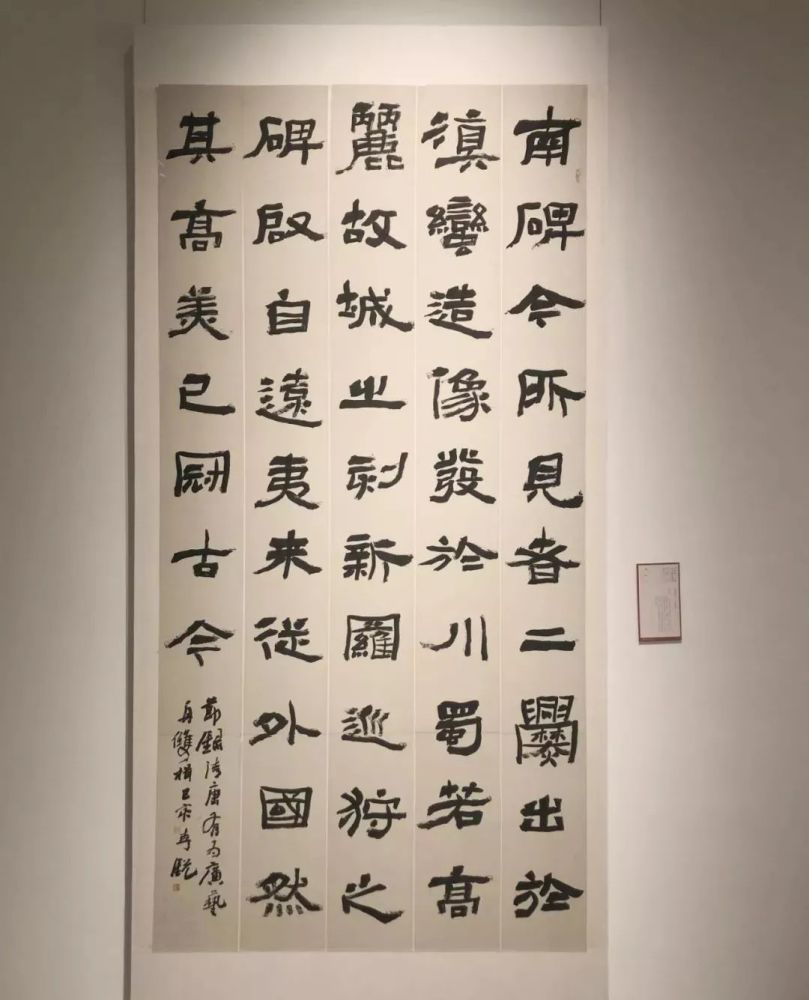 南碑今所見者二爨出於
滇蠻造像發於川蜀若高
麗故城之刻新羅巡狩之
碑啟自遠夷来從外國然
其高美已冠古今
節錄清康有為廣藝
舟雙楫己亥